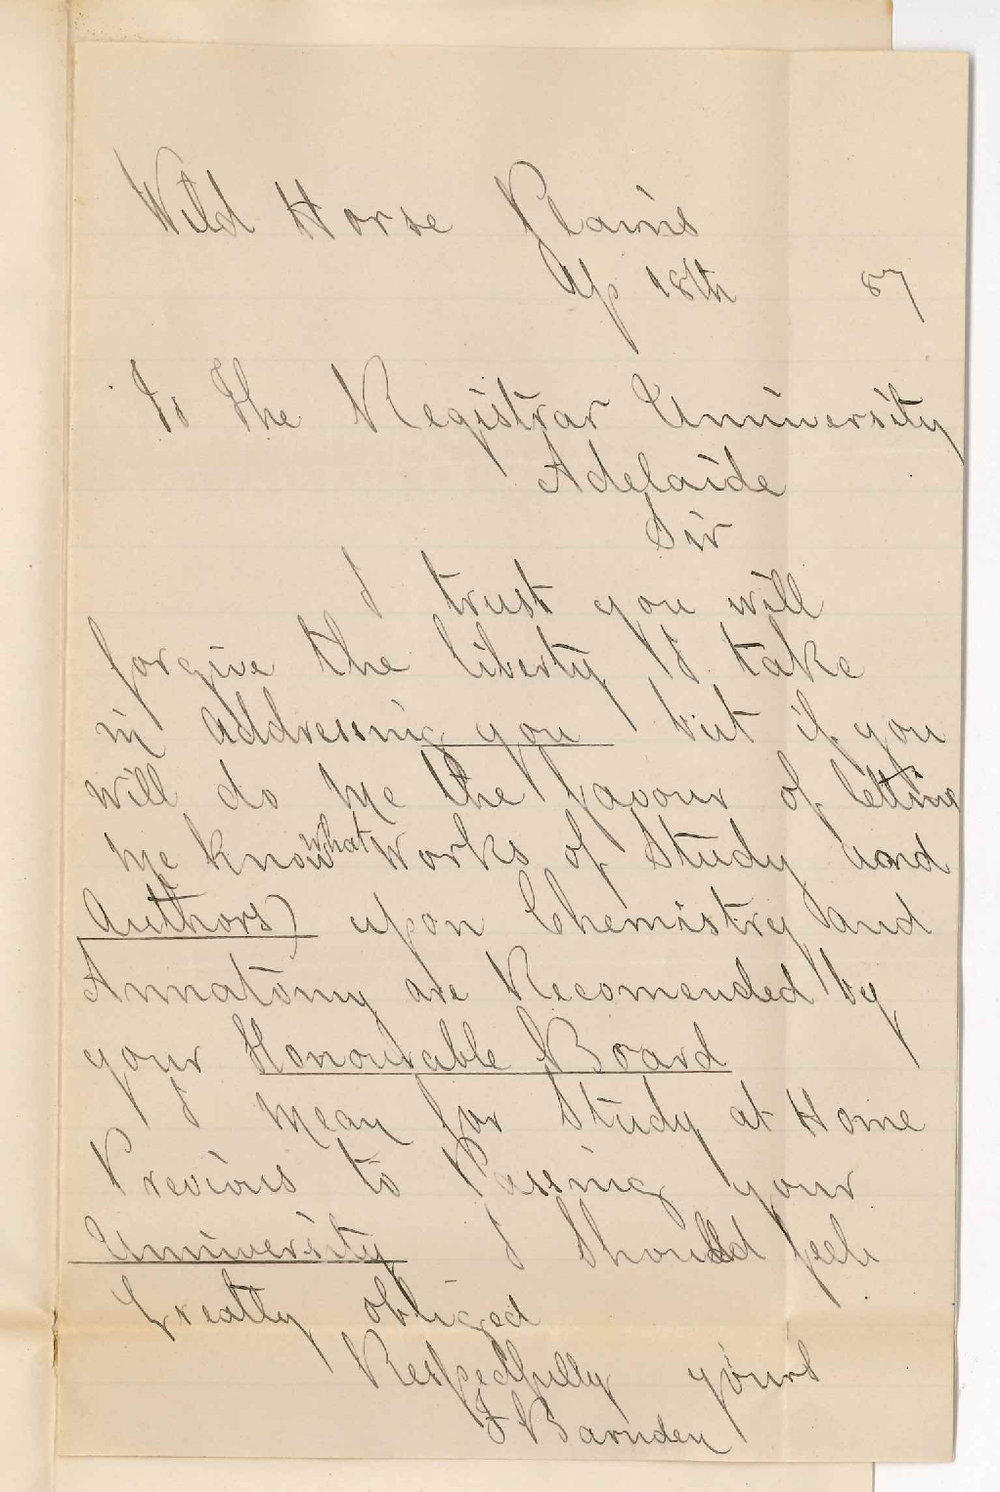 Wild Horse Plains
Ap 18th 87
To The Registrar Unniversity
Adelaide
Sir
I trust you will
forgive the liberty I take
in addressing you but if you
will do me the favour of letting
me know what works of Study (and
Authors) upon Chemistry and
Annatomy are Recomended by
your Honourable Board
I mean for Study at Home
Previous to Passing your
Unniversity I should feel
Greatly obliged
Respectfully yours
F Barnden